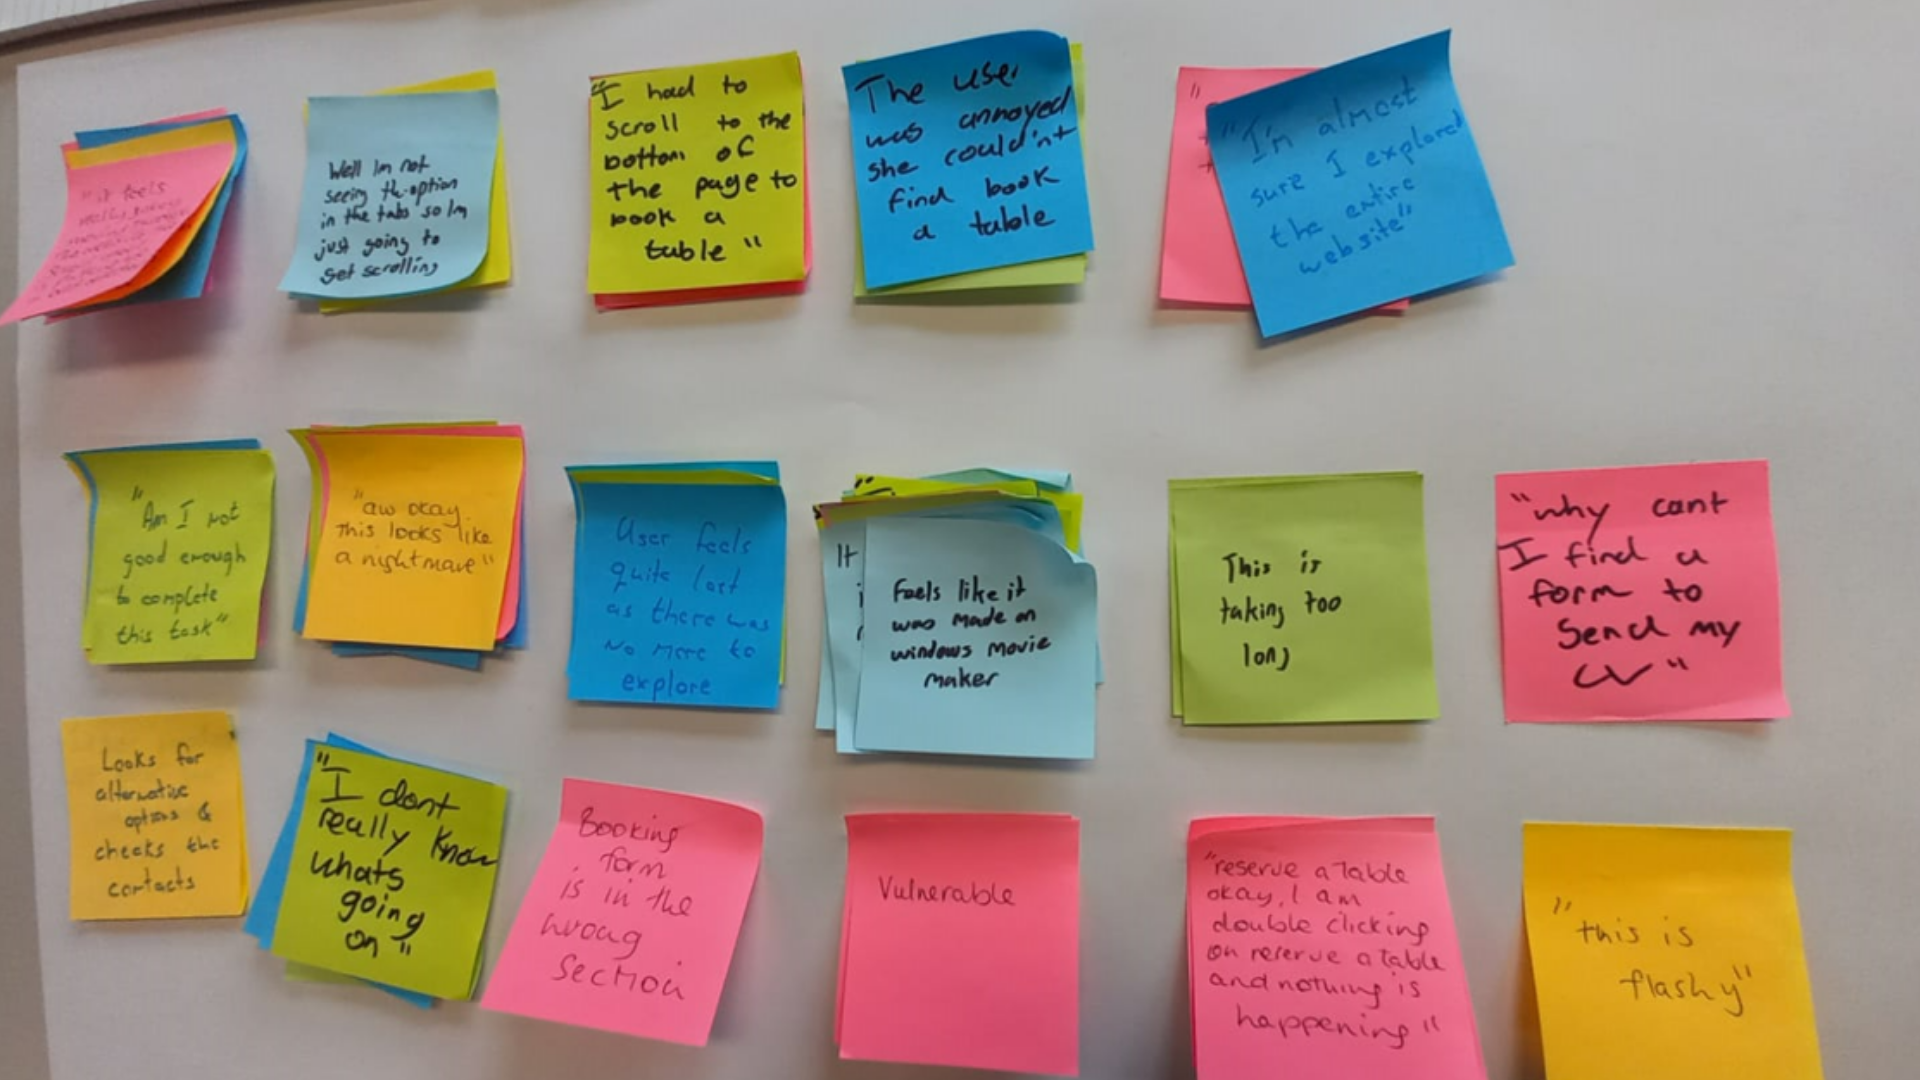 "it feels
really
Well Im not
seeing the option
in the tabs so Im
just going to
get scrolling
"I had to
scroll to the
bottom of
the page to
book a
table"
The user
was annoyed
she couldn't
find book
a table
"
"I'm almost
sure I explored
the entire
website"
"Am I not
good enough
to complete
this task"
"aw okay
this looks like
a nightmare"
User feels
quite lost
as there was
no more to
explore
It
Feels like it
was made on
windows movie
maker
This is
taking too
long
"why cant
I find a
form to
Send my
CV"
Looks for
alternative
options &
checks the
contacts
"I dont
really know
whats
going
on"
Booking
form
is in the
wrong
section
Vulnerable
"reserve a table
okay, I am
double clicking
on reserve a table
and nothing is
happening"
"this is
flashy"